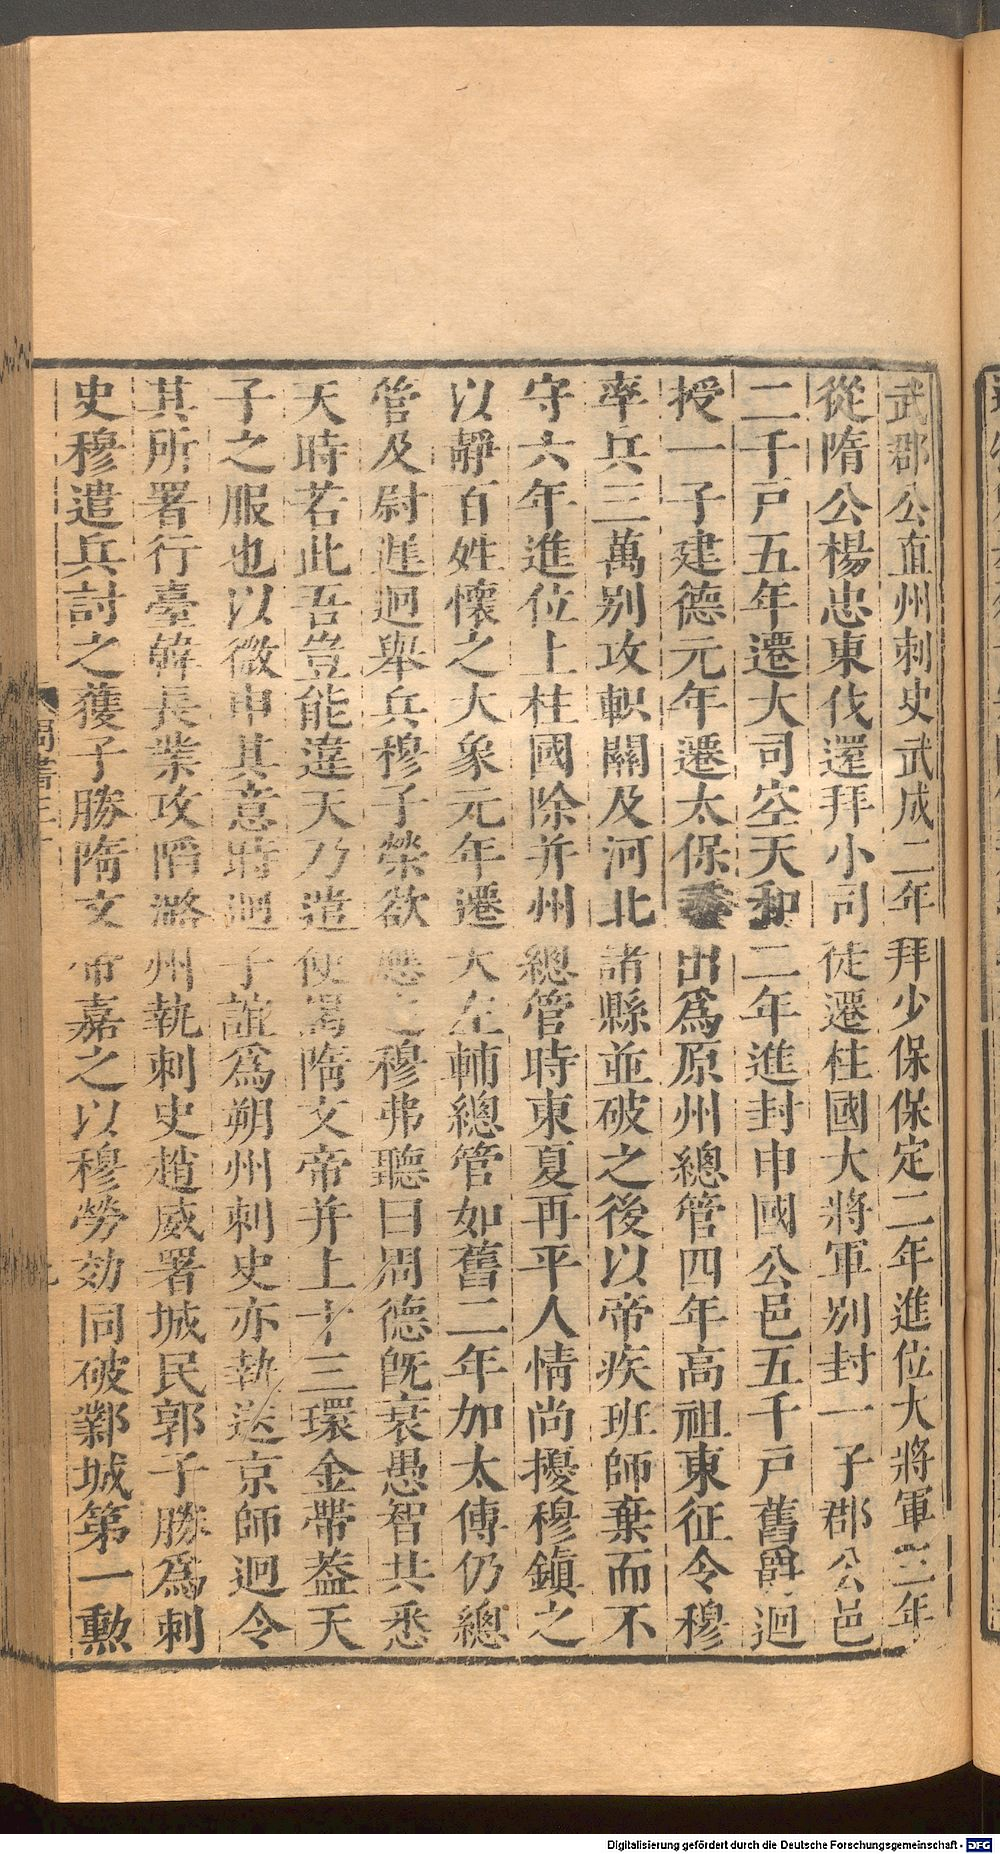 武郡公直州刺史武成二年拜少保保定二年進位大將軍三年
從隋公楊忠東伐還拜小司徒遷柱國大將軍别封一子郡公邑
二千戸五年遷大司空天和二年進封申國公邑五千戸舊爵迴
授一子建德元年遷太保 出爲原州總管四年高祖東征令穆
率兵三萬别攻軹關及河北諸縣並破之後以帝疾班師棄而不
守六年進位上柱國除并州總管時東夏再平人情尚擾穆鎮之
以靜百姓懷之大象元年遷大左輔總管如舊二年加太傅仍總
管及尉遲迥舉兵穆子榮欲應之穆弗聽曰周德旣衰愚智共悉
天時若此吾豈能違天乃遣使謁隋文帝并上十三環金帶葢天
子之服也以微申其意時迥子誼爲朔州刺史亦執送京師迥令
其所署行臺韓長業攻陷潞州執刺史趙威署城民郭子勝爲刺
史穆遣兵討之獲子勝隋文帝嘉之以穆勞効同破鄴城第一勲
Digitalisierung gefördert durch die Deutsche Forschungsgemeinschaft - DFG